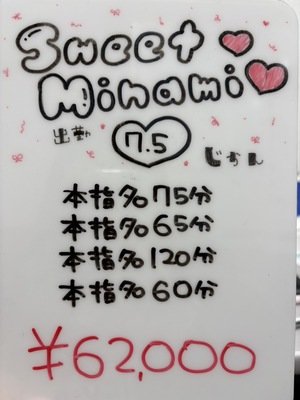 Sweet
Minami
出勤 7.5 じかん
本指名75分
本指名65分
本指名120分
本指名60分
¥62,000